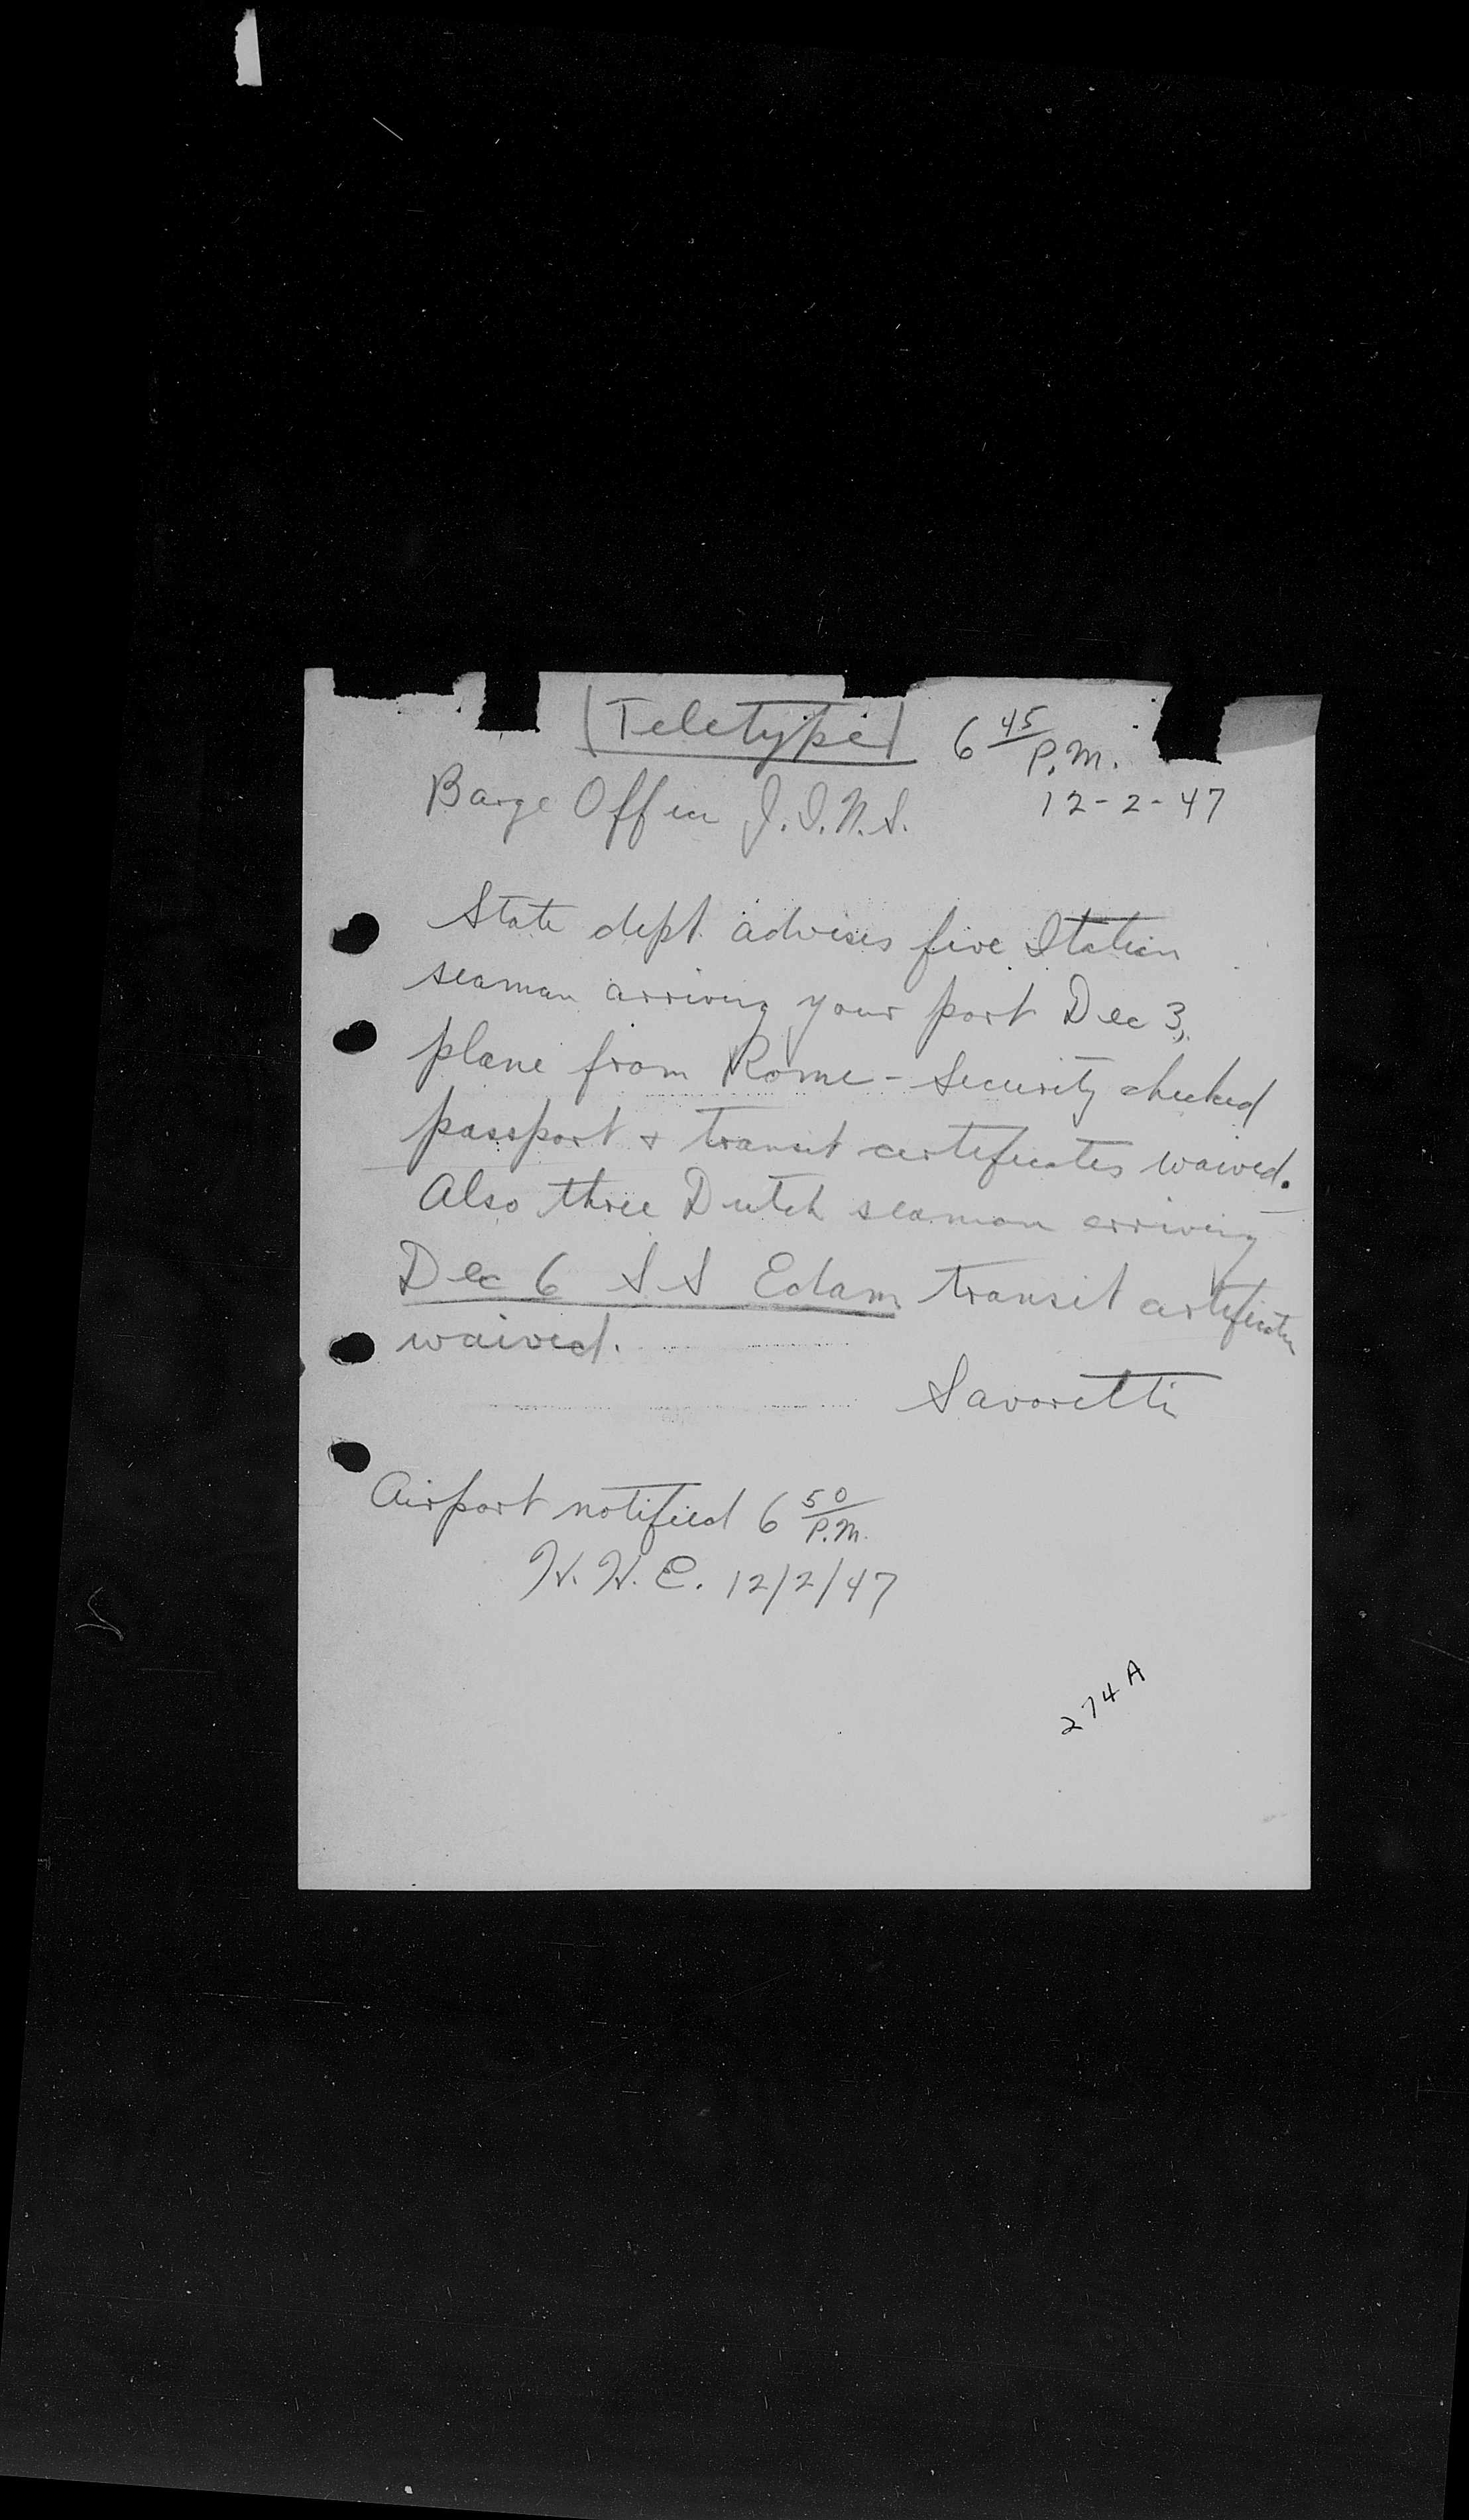 (Teletype) 6 45 P.M.
Barge Office I.I.N.S. 12-2-47
State dept. advises five Italian
seaman arriving your port Dec 3,
plane from Rome - Security checked
passport & transit certificates waived.
Also three Dutch seaman arriving
Dec 6 S S Edam transit certificates
waived.
Savoretti
Airport notified 6 50 P.M.
W. W. E. 12/2/47
274 A